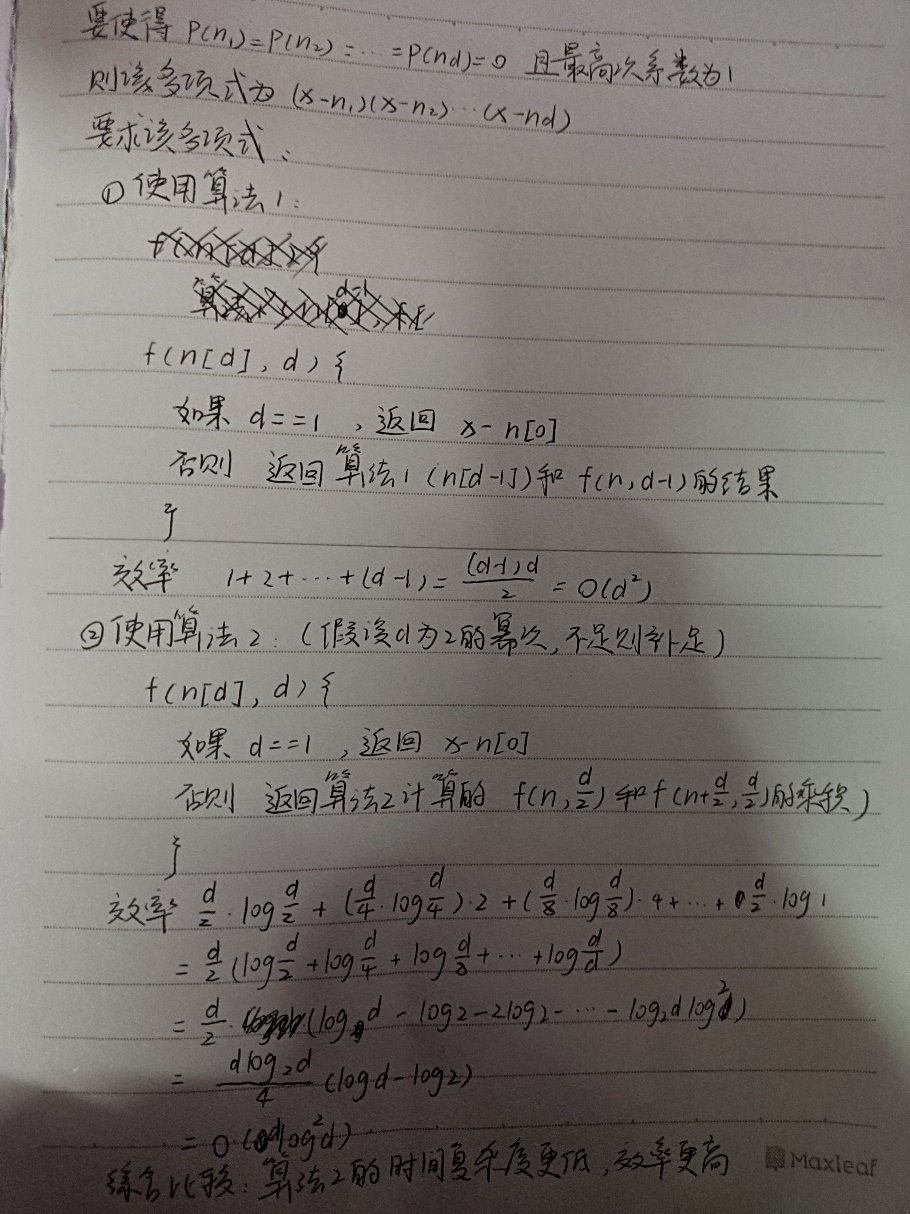 要使得 P(n₁)=P(n₂)=⋯=P(nd)=0 且最高次系数为1
则该多项式为 (x-n₁)(x-n₂)⋯(x-nd)
要求该多项式:
①使用算法1:
f(n[d], d) {
如果 d==1 ,返回 x-n[0]
否则 返回算法1 (n[d-1])和 f(n,d-1)的结果
}
效率 1+2+⋯+(d-1)=(d-1)d/2=O(d²)
②使用算法2:(假设d为2的幂次,不足则补足)
f(n[d], d) {
如果 d==1 ,返回 x-n[0]
否则 返回算法2计算的 f(n,d/2)和f(n+d/2,d/2)的乘积)
}
效率 d/2·log d/2+(d/4·log d/4)·2+(d/8·log d/8)·4+⋯+d/2·log1
=d/2(log d/2+log d/4+log d/8+⋯+log d/d)
=d/2·(log₂d-log2-2log2-⋯-log₂d log2)
=dlog₂d/4(logd-log2)
=O(dlog²d)
综合比较:算法2的时间复杂度更低,效率更高
Maxleaf